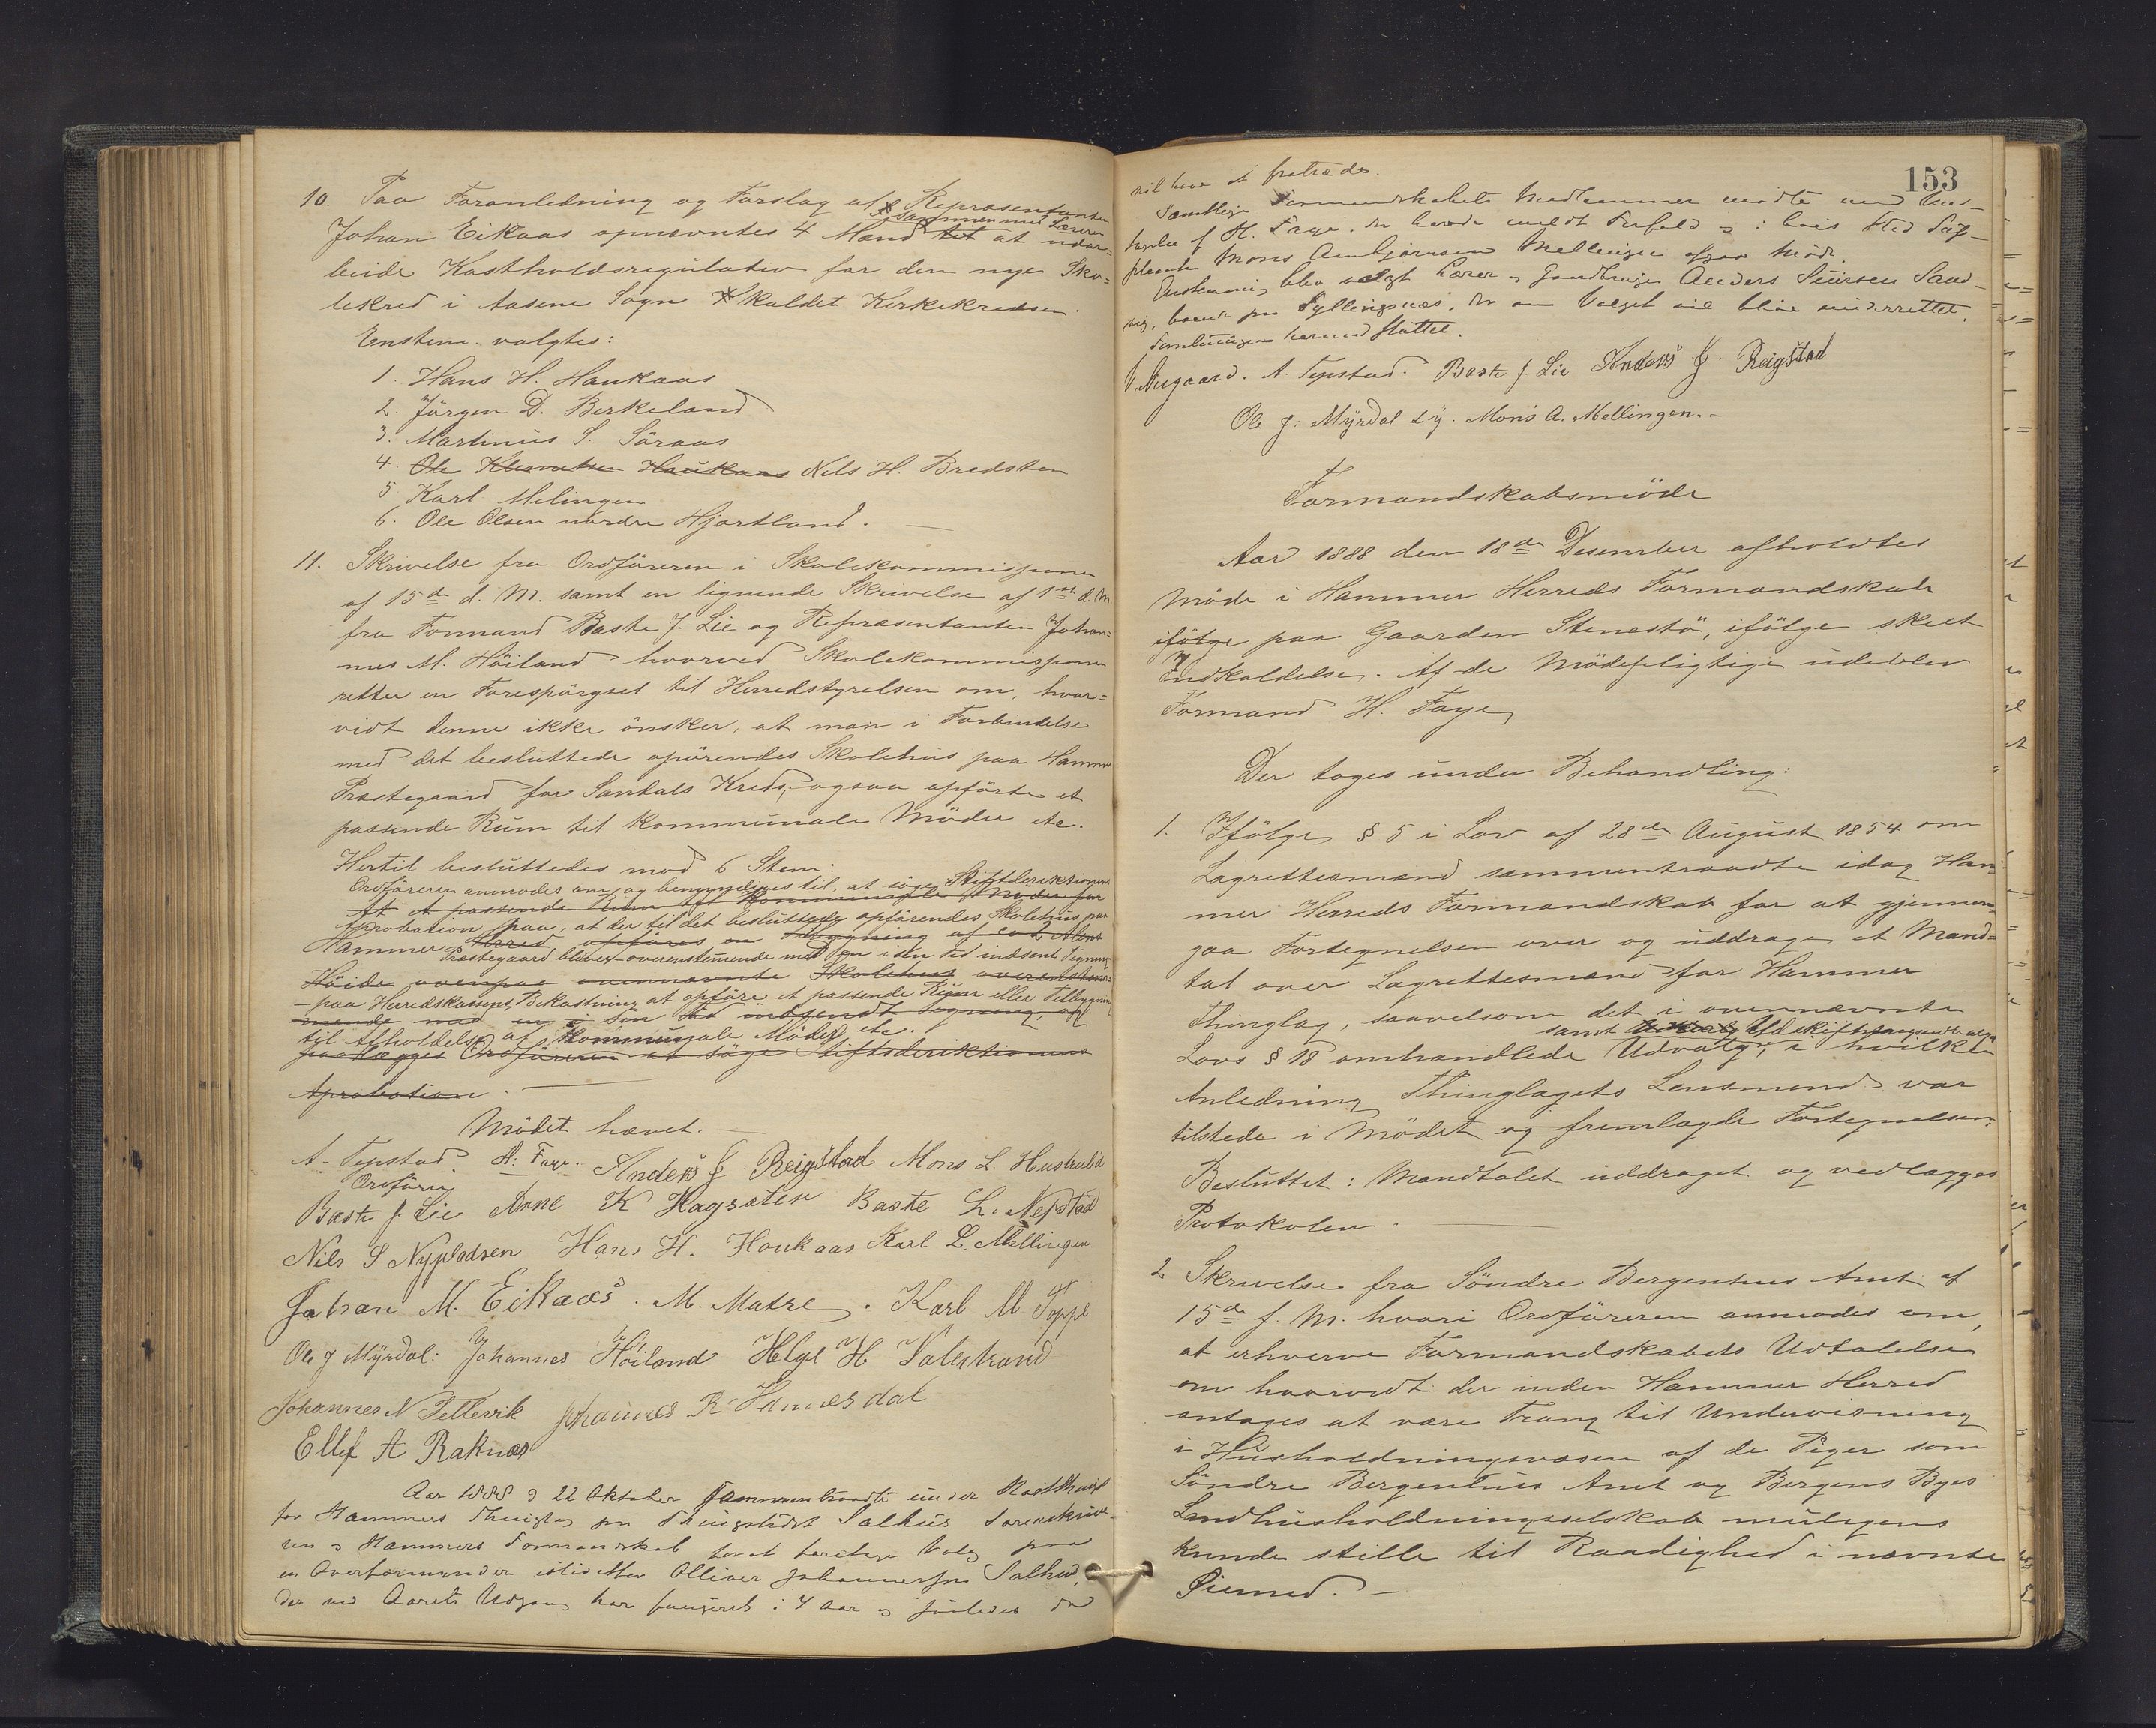 10. Paa Foranledning og Forslag af Repræsentanten
sammen med Læreren
Johan Eikaas opnævntes 4 Mænd til at udar=
beide Kostholdsregulativ for den nye Sko=
lekred i Aasene Sogn kaldet Kirkekredsen.
Enstem. valgtes:
1. Hans H. Haukaas
2. Jörgen D. Birkeland
3. Martinus S. Söraas
4. Ole Haukaas Nils H. Bredsten
5 Karl Melingen
6. Ole Olsen nordre Hjortland.
11. Skrivelse fra Ordföreren i Skolekommissjonen
af 15de d. M. samt en lignende Skrivelse af 1st d. M
fra Formand Baste J. Lie og Repræsentanten Johan=
nes M. Höiland hvorved Skolekommissjonen
retter en Forespörgsel til Herredstyrelsen om, hvor=
vidt denne ikke önsker, at man i Forbindelse
med det besluttede opförendes Skolehus paa Hammer
Præstegaard for Santals Kreds, ogsaa opförte et
passende Rum til kommunale Möder etc.
Hertil besluttedes mod 6 Stem:
Ordföreren anmodes om og bemyndiges til, at söge Stiftsdirektionens
At et passende Rum til Kommunale Möder for
Aprobation paa, at der til det besluttede opförendes Skolehus paa
Hammer Herred opföres en Tilbygning af ca 2 Alens
Præstegaard bliver overenstemmende med den i sin tid indsent Tegning
Höide ovenpaa ovennævnte Skolehus overenstem=
– paa Herredskassens Bekostning at opföre et passende Rum eller Tilbygning
mende med en i sin tid indsendt Tegning, og
til Afholdelse af Kommunale Möder etc.
paalægges Ordföreren at söge Stiftsdirektionens
Aprobation.
Mödet hævet.
A. Tepstad H. Faye. Anders J. Reigstad Mons L. Husdalid
Ordförer
Baste J. Lie Arne K Hagsæter Baste L. Nepstad
Nils S Nypladsen Hans H. Houkaas Karl L. Mellingen
Johan M. Eikaas. M. Matre. Karl M Toppe
Ole J Myrdal: Johannes Höiland Helge H Valestrand
Johannes N Tellevik Johannes R Hannesdal
Ellef A Raknæs
Aar 1888 d 22 Oktober sammentraadte under
for Hammers Thinglag paa Thingstedet Salhus Sorenskrive-
ren og Hammers Formandskab for at foretage Valg paa
en Overformynder istedetfor Olliver Johannessen Salhus,
der ved Aarets Udgang har fungeret i 4 Aar og saaledes da
153
vil have at fratræde.
Samtlige Formandskabets Medlemmer mödte med Und-
tagelse af H. Faye, der havde meldt Forfald og i hvis Sted Sup-
pleant Mons Ambjørnsen Mellingen afgav Möde.
Enstemmig blev valgt Lærer og Gaardbruger Anders Siursen Sand-
vig, boende paa Fyllingsnæs, der om Valget vil blive underrettet.
Forretningen hermed sluttet.
V. Nygaard. A. Tepstad. Baste J. Lie Anders J. Reigstad
Ole J: Myrdal Mons A. Mellingen.
Formandskabsmöde
Aar 1888 den 18de Desember afholdtes
Möde i Hammer Herreds Formandskab
ifölge paa Gaarden Stenestö, ifölge skeet
Indkaldelse. Af de Mödepligtige udeblev
Formand H. Faye
Der toges under Behandling:
1. Ifölge § 5 i Lov af 28de August 1854 om
Lagrettesmænd sammentraadte idag Ham=
mer Herreds Formandskab for at gjennem=
gaa Fortegnelsen over og uddrage et Mand=
tal over Lagrettesmænd for Hammer
Thinglag, saavelsom det i ovennævnte
samt Udskiftningsudvalg
Lovs § 18 omhandlede Udvalg, i hvilken
Anledning Thinglagets Lensmand var
tilstede i Mödet og fremlagde Fortegnelsen.
Besluttet: Mandtalet uddraget og vedlægges
Protokolen.
2 Skrivelse fra Söndre Bergenhus Amt af
15de f. M. hvori Ordföreren anmodes om,
at erhverve Formandskabets Udtalelse
om hvorvidt der inden Hammer Herred
antages at være Trang til Undervisning
i Husholdningsvæsen af de Piger som
Söndre Bergenhus Amt og Bergens Byes
Landhusholdningselskab muligens
kunde stille til Raadighed i nævnte
Öiemed.